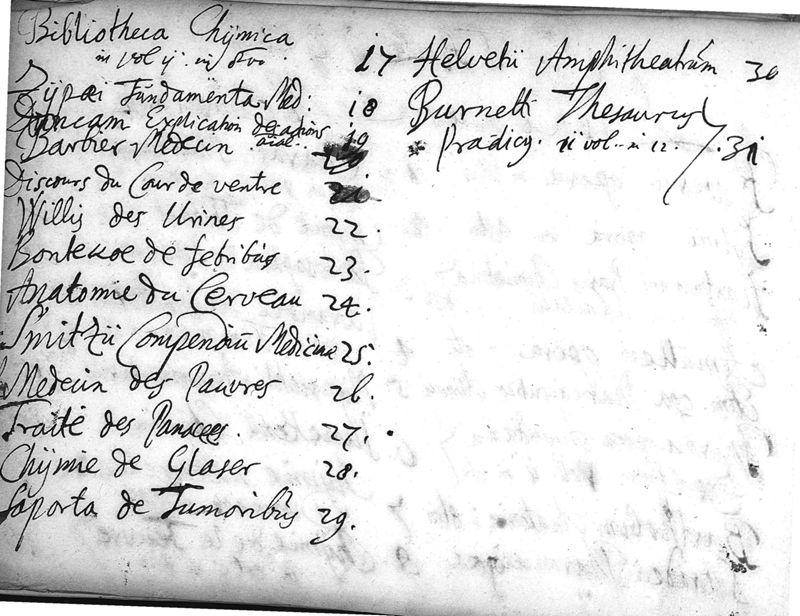 Bibliotheca Chÿmica
in vol ij. in 8vo 17
Zÿpæi Fundamenta Med: 18
Duncani Explication des actions 19
Barbier Medecin
Discours du Cour de ventre 21.
Willis des Urines 22.
Bontekoe de febribus 23.
Anatomie du Cerveau 24.
Smitzii Compendiū Medicinæ 25.
Medecin des Pauvres 26.
Traité des Panacees. 27.
Chÿmie de Glaser 28.
Saporta de Tumoribus 29.
Helvetii Amphitheatrum 30
Burnetti Thesaurus
Pradicÿ. ii vol.. in 12. 31